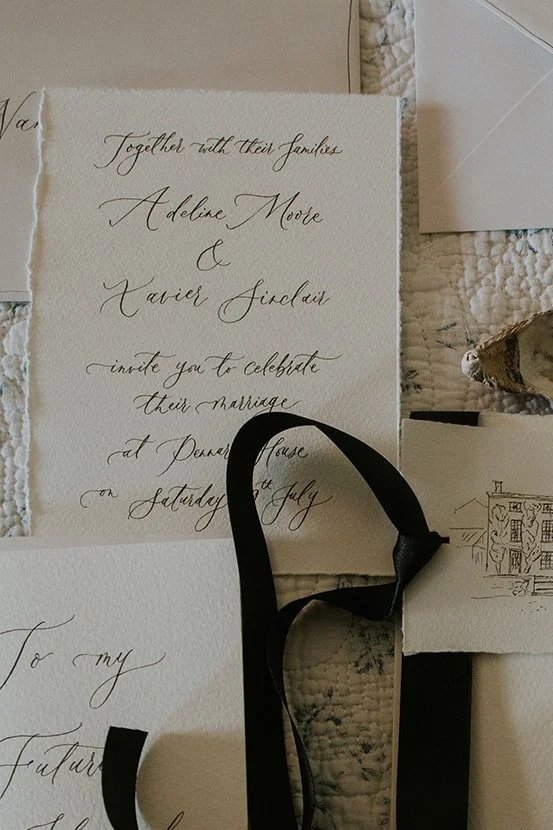 Together with their families
Adeline Moore
&
Xavier Sinclair
invite you to celebrate
their marriage
at House
on Saturday July
To my